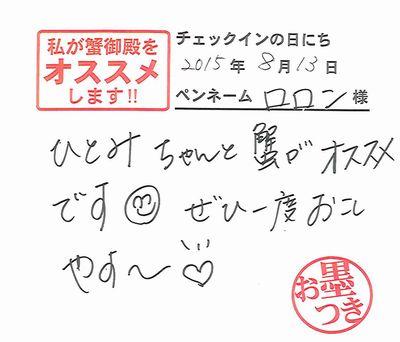 私が蟹御殿を
オススメ
します!!
チェックインの日にち
2015年8月13日
ペンネーム ロロン 様
ひとみちゃんと蟹がオススメ
です ぜひ一度おこし
やす～♡
お墨つき